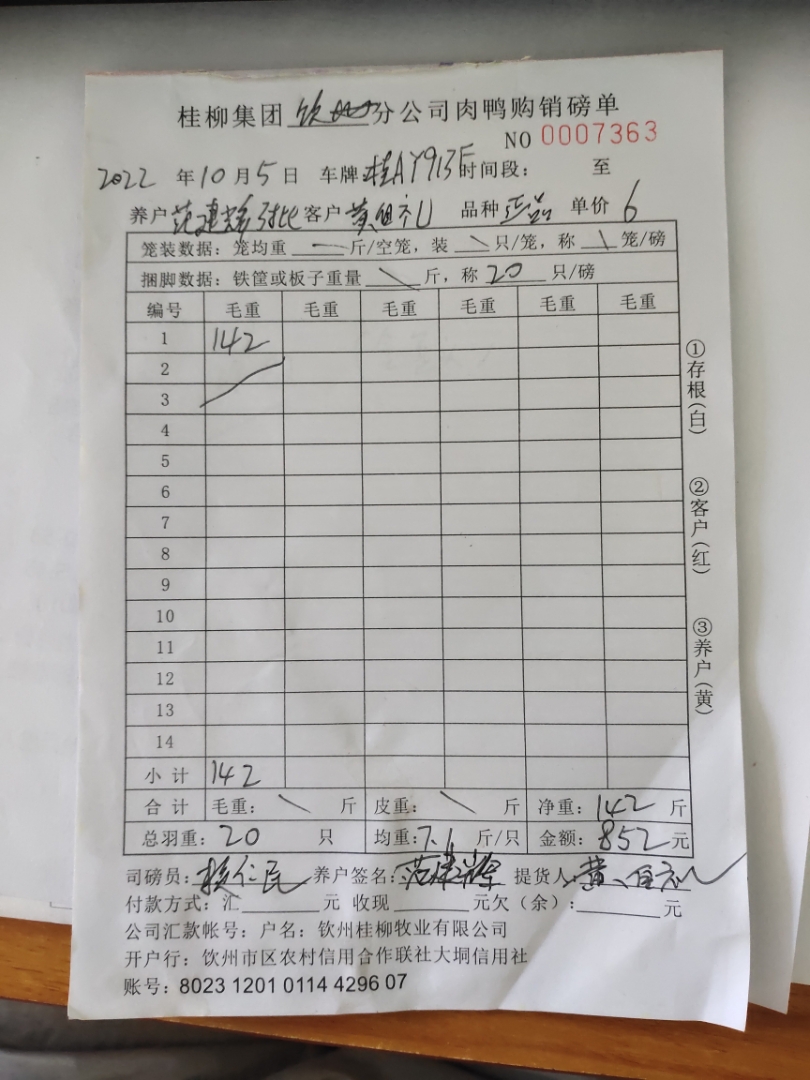 桂柳集团 钦州 分公司肉鸭购销磅单
NO 0007363
2022 年 10 月 5 日 车牌 桂AY913F 时间段: 至
养户 范建辉对比 客户 黄自礼 品种 正品 单价 6
笼装数据:笼均重 — 斤/空笼,装 \ 只/笼,称 \ 笼/磅
捆脚数据:铁筐或板子重量 \ 斤,称 20 只/磅
编号 毛重 毛重 毛重 毛重 毛重 毛重
1 142
2
3
4
5
6
7
8
9
10
11
12
13
14
小计 142
合计 毛重: \ 斤 皮重: \ 斤 净重: 142 斤
总羽重: 20 只 均重: 7.1 斤/只 金额: 852 元
司磅员: 仁民 养户签名: 范建辉 提货人: 黄自礼
付款方式:汇 元 收现 元欠(余): 元
公司汇款帐号:户名:钦州桂柳牧业有限公司
开户行:钦州市区农村信用合作联社大垌信用社
账号:8023 1201 0114 4296 07
①存根(白)
②客户(红)
③养户(黄)